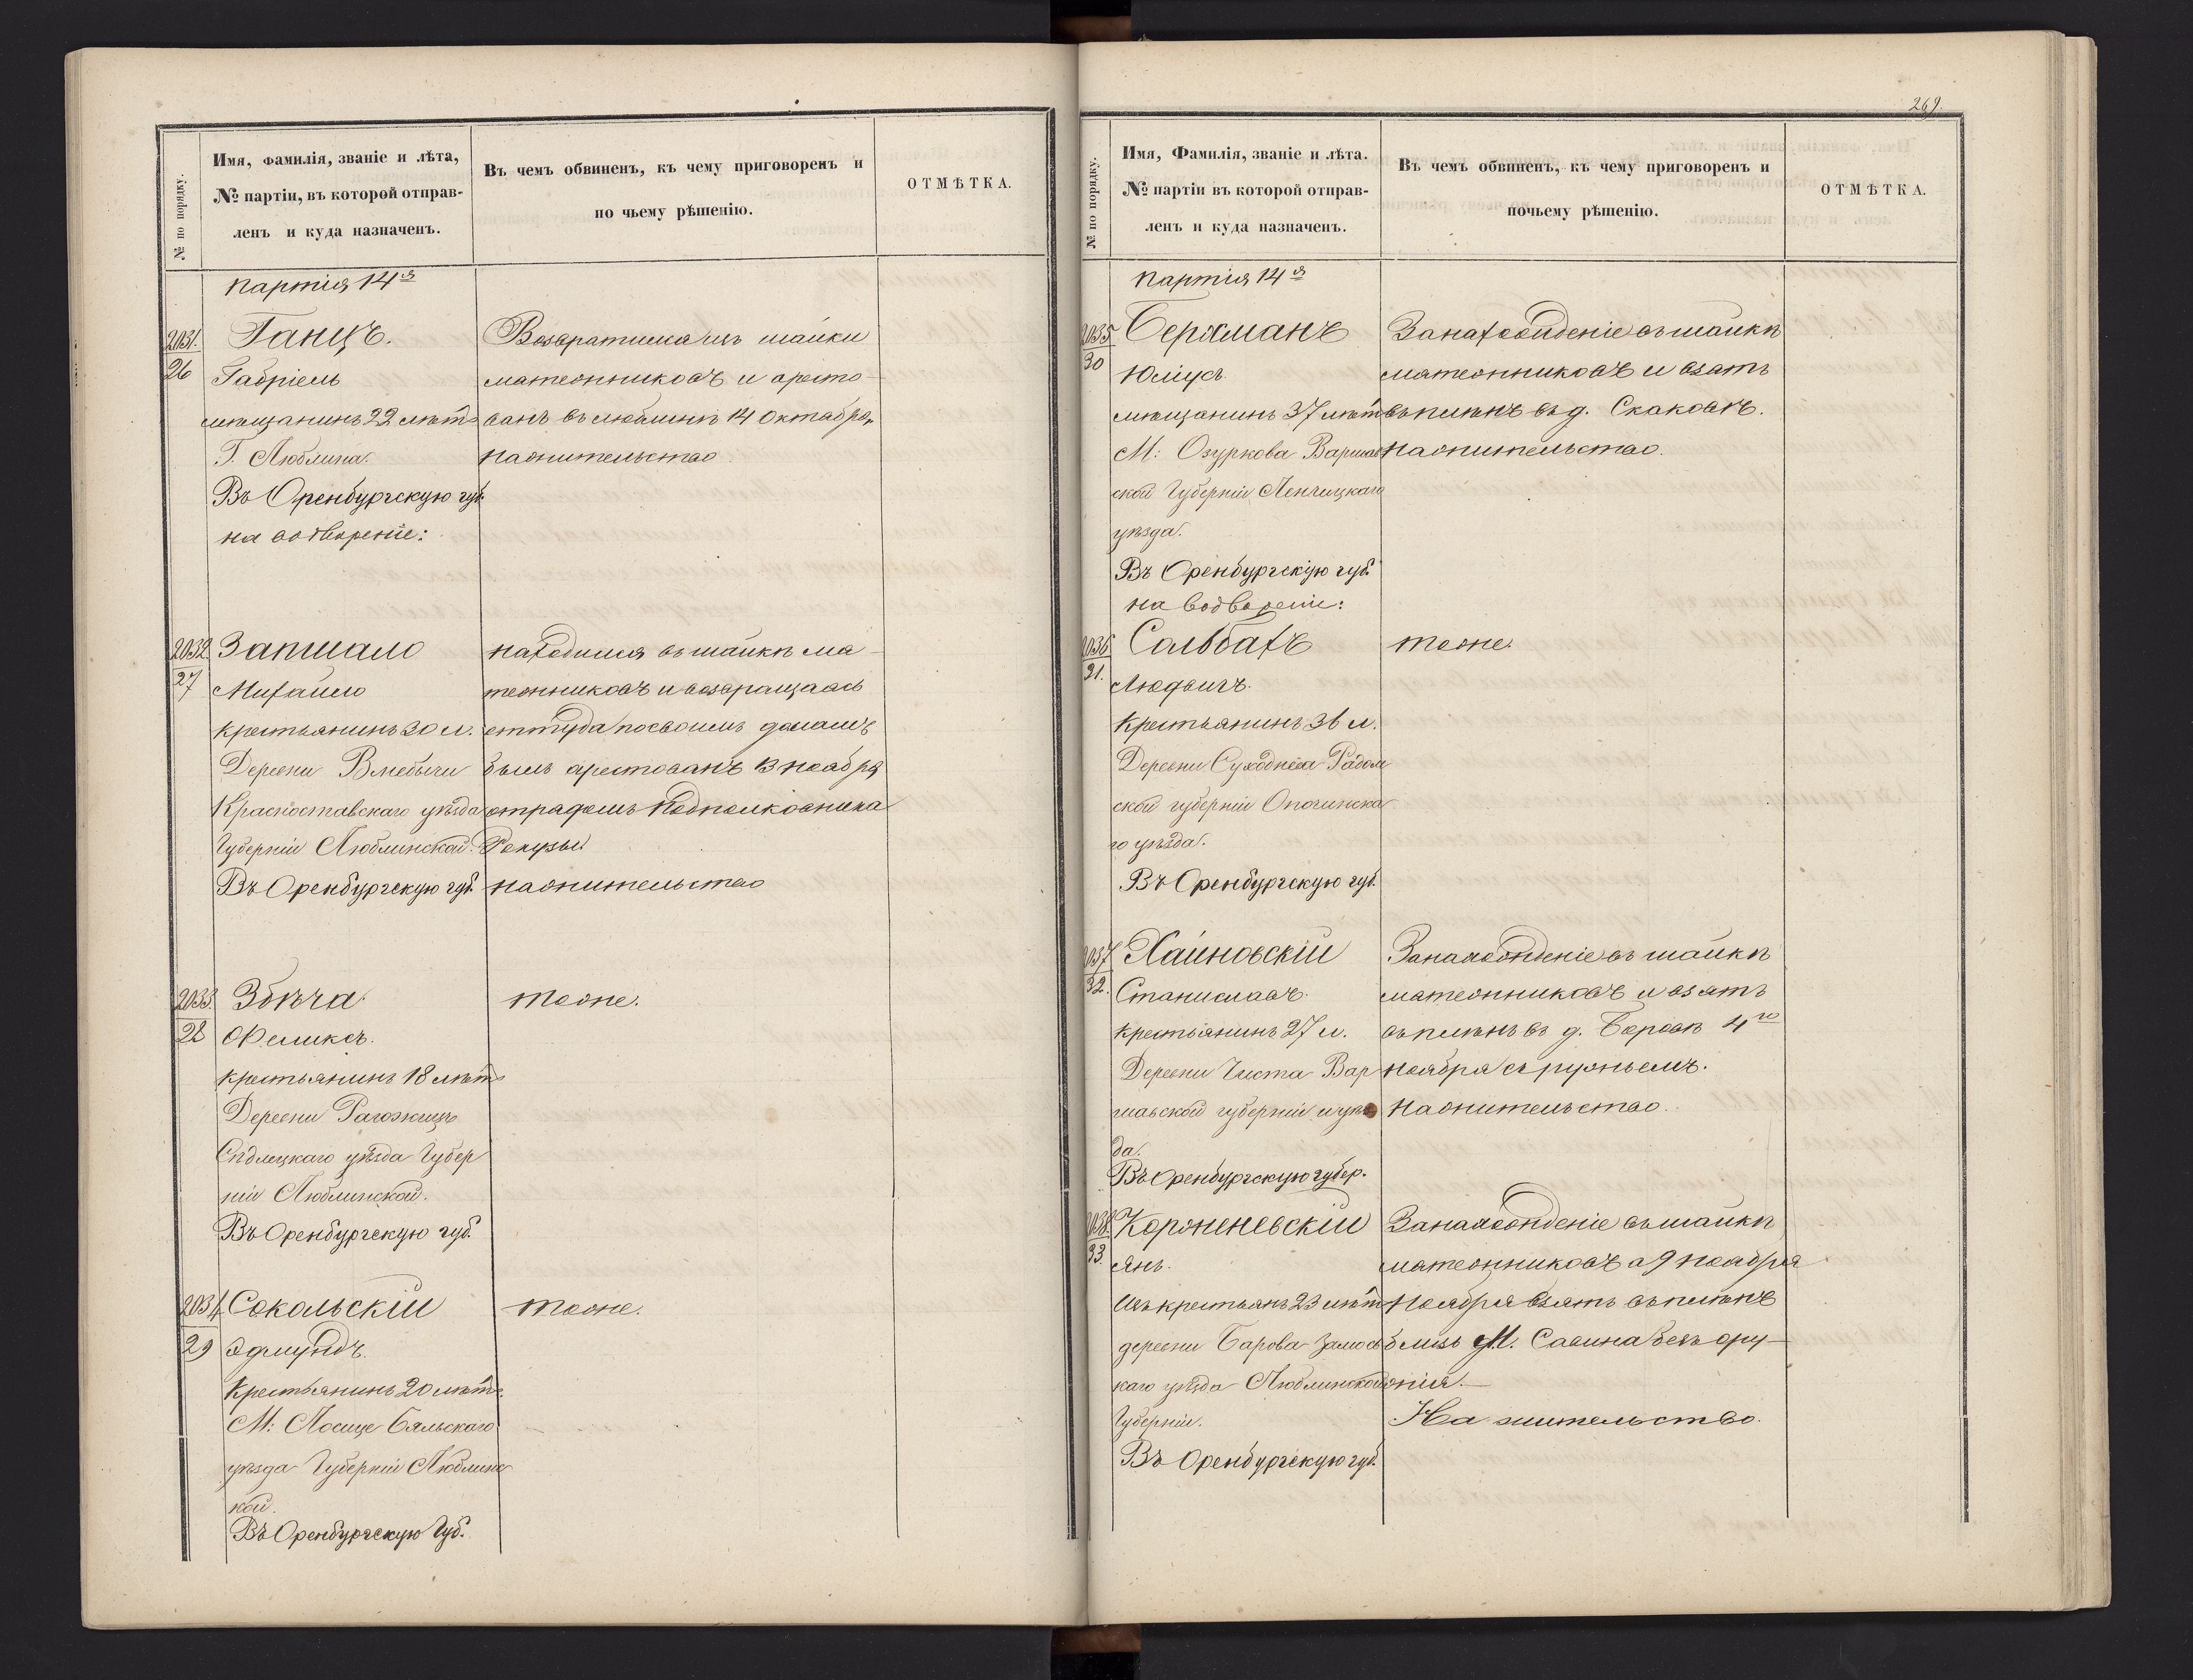 № по порядку.
Имя, фамилія, званіе и лѣта,
№ партіи, въ которой отправ-
ленъ и куда назначенъ.
Въ чемъ обвиненъ, къ чему приговоренъ и
по чьему рѣшенію.
ОТМѢТКА.
Партія 14я
2031.
26
Ганцъ.
Габріель
мѣщанинъ 22 лѣтъ
Г. Люблина.
Въ Оренбургскую губ.
на водвореніе:
Возвратился изъ шайки
мятежниковъ и аресто-
ванъ въ Люблинѣ 14 Октября,
на жительство
2032.
27
Запшало
Михайло
крестьянинъ 30 л.
Деревни
Красноставскаго уѣзда
Губерніи Люблинской.
Въ Оренбургскую губ.
находился въ шайкѣ мя-
тежниковъ и возвращаясь
оттуда по своимъ домамъ
былъ арестованъ 13 ноября
отрядомъ Подполковника
на жительство
2033.
28
Збѣча.
Феликсъ.
крестьянинъ 18 лѣтъ
Деревни
Сѣдлецкаго уѣзда Губер
ніи Люблинской.
Въ Оренбургскую губ.
тоже.
2034.
29
Сокольскій
Эдмундъ.
Крестьянинъ 20 лѣтъ
М: Лосице Бяльскаго
уѣзда Губерніи Люблинс
кой.
Въ Оренбургскую Губ.
тоже.
269.
№ по порядку.
Имя, Фамилія, званіе и лѣта.
№ партіи въ которой отправ-
ленъ и куда назначенъ.
Въ чемъ обвиненъ, къ чему приговоренъ и
почьему рѣшенію.
ОТМѢТКА.
Партія 14я
2035
30
Берхманъ
Юліусъ.
мѣщанинъ 37 лѣтъ
М: Озуркова Варшав
ской Губерніи Ленчицкаго
уѣзда.
Въ Оренбургскую губ.
на водвореніе:
За нахожденіе въ шайкѣ
мятежниковъ и взятъ
въ плѣнъ въ д. Скаковѣ.
На жительство.
2036
31.
Сальбахъ
Людвигъ.
Крестьянинъ 36 л.
Деревни Суходнёва Радом
ской губерніи Опочинска
го уѣзда.
Въ Оренбургскую губ.
тоже.
2037
32.
Хайновскій
Станиславъ.
крестьянинъ 27 л.
Деревни Чиста Вар
шавской губерніи и уѣз
да.
Въ Оренбургскую губер.
За нахожденіе въ шайкѣ
мятежниковъ и взятъ
въ плѣнъ въ д. Боровѣ 4го
ноября съ ружьемъ.
На жительство.
2038.
33.
Корженевскій
Янъ.
Изъ крестьянъ 23 лѣтъ
деревни Барова Замос
каго уѣзда Люблинской
Губерніи.
Въ Оренбургскую губ.
За нахожденіе въ шайкѣ
мятежниковъ а 9 ноября
Ноября взятъ въ плѣнъ
близъ М. Савина безъ ору-
жія.
На жительство.